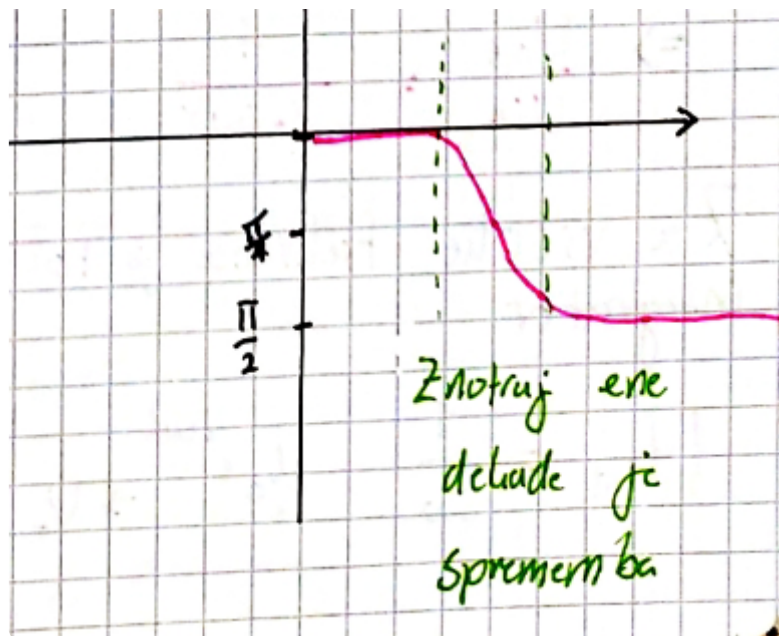 π/4
π/2
Znotraj ene
dekade je
sprememba